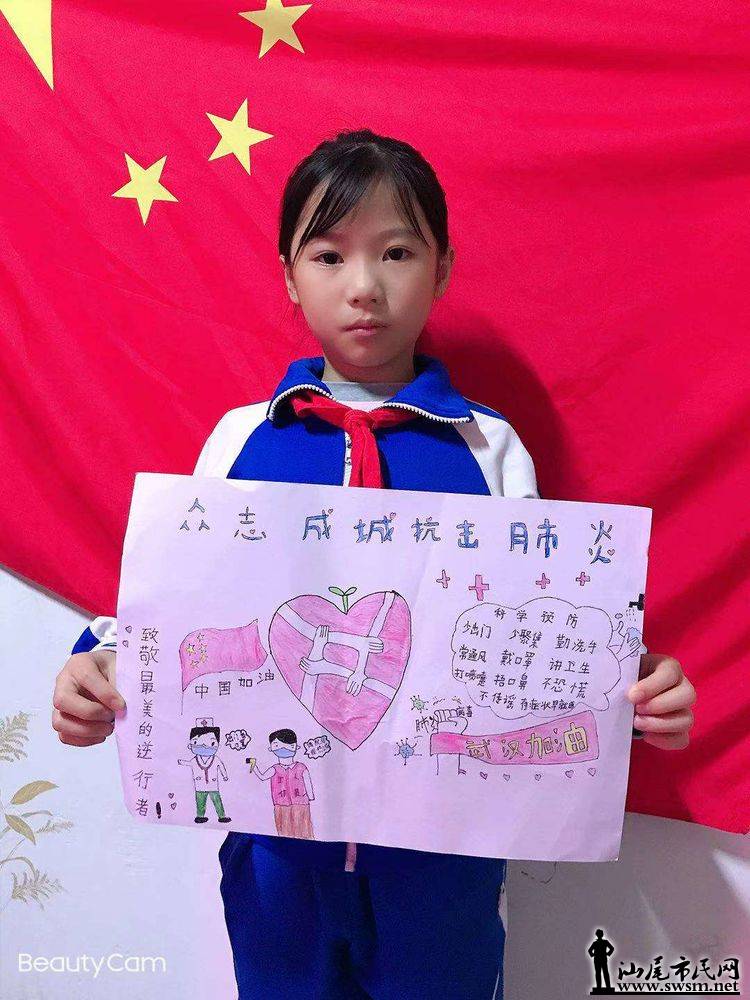 众志成城抗击肺炎
致敬最美的逆行者!
中国加油
科学预防
少出门 少聚集 勤洗手
常通风 戴口罩 讲卫生
打喷嚏 捂口鼻 不恐慌
不传谣 有症状早就医
肺 病毒
武汉加油
BeautyCam
汕尾市民网
www.swsm.net